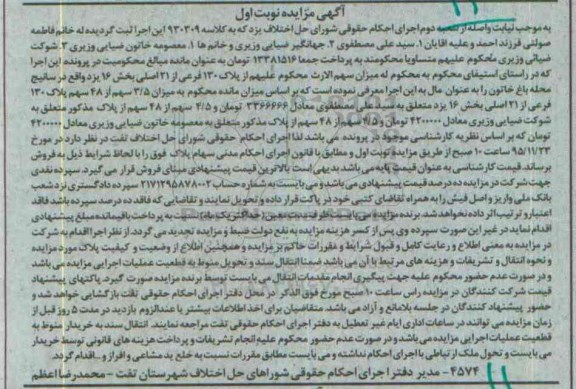 آگهی مزایده نوبت اول
به موجب نیابت واصله از شعبه دوم اجرای احکام حقوقی شورای حل اختلاف یزد که به کلاسه ۹۳۰۳۰۹ این اجرا ثبت گردیده له خانم فاطمه
صولتی فرزند احمد و علیه آقایان ۱. سید علی مصطفوی ۲. جهانگیر ضیایی وزیری و خانم ها ۱. معصومه خاتون ضیایی وزیری ۲. شوکت
ضیائی وزیری محکوم علیهم متساویا محکومند به پرداخت جمعا ۱۳۳۸۱۵۱۶ تومان به عنوان مانده مبالغ محکومیت در پرونده این اجرا
که در راستای استیفای محکوم به محکوم له میزان سهم الارث محکوم علیهم از پلاک ۱۳۰ فرعی از ۲۱ اصلی بخش ۱۶ یزد واقع در سانیج
محله باغ خاتون را به عنوان مال به این اجرا معرفی نموده است که بر اساس میزان مانده محکوم به میزان ۳/۵ سهم از ۴۸ سهم پلاک ۱۳۰
فرعی از ۲۱ اصلی بخش ۱۶ یزد متعلق به سید علی مصطفوی معادل ۳۳۶۶۶۶۶ تومان و ۴/۵ سهم از ۴۸ سهم از پلاک مذکور متعلق به
شوکت ضیایی وزیری معادل ۴۲۰۰۰۰۰ تومان و ۴/۵ سهم از ۴۸ سهم از پلاک مذکور متعلق به معصومه خاتون ضیایی وزیری معادل ۴۲۰۰۰۰۰
تومان که بر اساس نظریه کارشناسی موجود در پرونده می باشد لذا اجرای احکام حقوقی شورای حل اختلاف تفت در نظر دارد در مورخ
۹۵/۱۱/۲۳ ساعت ۱۰ صبح از طریق مزایده نوبت اول و مطابق با قانون اجرای احکام مدنی سهام پلاک فوق را با لحاظ شرایط ذیل به فروش
برساند. قیمت کارشناسی به عنوان قیمت پایه می باشد بدیهی است بالاترین قیمت پیشنهادی مبنای فروش قرار می گیرد. سپرده نقدی
جهت شرکت در مزایده ده درصد قیمت پیشنهادی می باشد و می بایست به شماره حساب ۲۱۷۱۲۹۵۸۷۸۰۰۲ سپرده دادگستری نزد شعب
بانک ملی واریز و اصل فیش را به همراه تقاضای کتبی خود در پاکت قرار داده و تحویل نمایند و تقاضایی که فاقد ده درصد سپرده باشد فاقد
اعتبار و ترتیب اثر داده نخواهد شد. برنده مزایده می بایست ظرف مدت معین (حداکثر یک ماه) نسبت به پرداخت باقیمانده مبلغ پیشنهادی
اقدام نماید در غیر این صورت سپرده وی پس از کسر هزینه مزایده به نفع دولت ضبط و مزایده تجدید می گردد. از نظر اجرا اقدام به شرکت
در مزایده به معنی اطلاع و رعایت کامل و قبول شرایط و مقررات حاکم بر مزایده و همچنین اطلاع از وضعیت و کیفیت پلاک مورد مزایده
و نحوه انتقال و تشریفات و هزینه های مرتبط با آن می باشد ضمنا انتقال سند و تحویل منوط به قطعیت عملیات اجرایی مزایده می باشد
و در صورت عدم حضور محکوم علیه جهت پیگیری انجام مقدمات انتقال می بایست توسط برنده مزایده صورت گیرد. پاکتهای پیشنهاد
قیمت شرکت کنندگان در مزایده راس ساعت ۱۰ صبح مورخ فوق الذکر در محل دفتر اجرای احکام حقوقی تفت بازگشایی خواهد شد و
حضور پیشنهاد کنندگان در جلسه بلامانع و آزاد می باشد. متقاضیان برای اخذ اطلاعات بیشتر یا عندالزوم بازدید در مدت ۵ روز قبل از
زمان مزایده می توانند در ساعات اداری ایام غیر تعطیل به دفتر اجرای احکام حقوقی تفت مراجعه نمایند. انتقال سند به خریدار منوط به
قطعیت عملیات اجرایی مزایده می باشد و در صورت عدم حضور محکوم علیه انجام تشریفات و پرداخت هزینه های قانونی توسط خریدار
می بایست و تحول ملک ارتباطی با اجرای احکام نداشته و می بایست مطابق مقررات نسبت به خلع ید مشاعی و افراز و ... اقدام گردد.
۴۵۷۴ - مدیر دفتر اجرای احکام حقوقی شوراهای حل اختلاف شهرستان تفت - محمدرضا اعظم